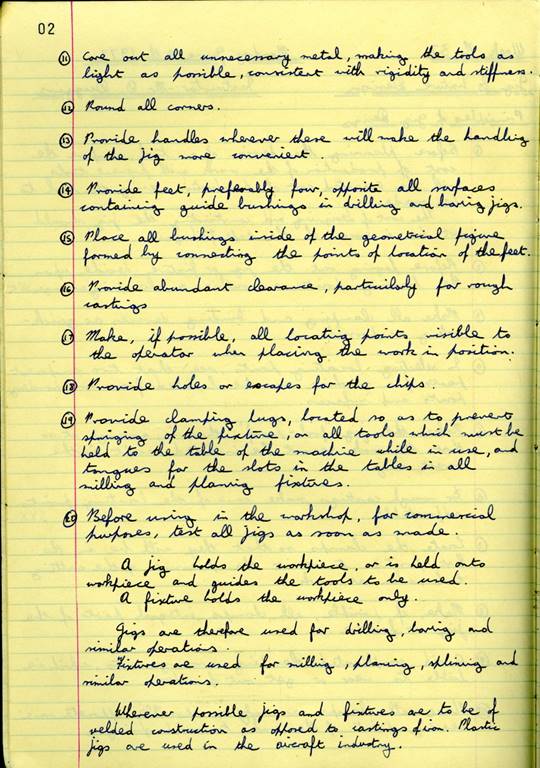 02
(11) Core out all unnecessary metal, making the tools as
light as possible, consistent with rigidity and stiffness.
(12) Round all corners.
(13) Provide handles wherever these will make the handling
of the jig more convenient.
(14) Provide feet, preferably four, opposite all surfaces
containing guide bushings in drilling and boring jigs.
(15) Place all bushings inside of the geometrical figure
formed by connecting the points of location of the feet.
(16) Provide abundant clearance, particularly for rough
castings
(17) Make, if possible, all locating points visible to
the operator when placing the work in position.
(18) Provide holes or escapes for the chips.
(19) Provide clamping lugs, located so as to prevent
springing of the fixture, on all tools which must be
held to the table of the machine while in use, and
tongues for the slots in the tables in all
milling and planing fixtures.
(20) Before using in the workshop, for commercial
purposes, test all jigs as soon as made.
A jig holds the workpiece, or is held onto
workpiece and guides the tools to be used.
A fixture holds the workpiece only.
Jigs are therefore used for drilling, boring and
similar operations.
Fixtures are used for milling, planing, splining and
similar operations.
Wherever possible jigs and fixtures are to be of
welded construction as opposed to castings of iron. Plastic
jigs are used in the aircraft industry.